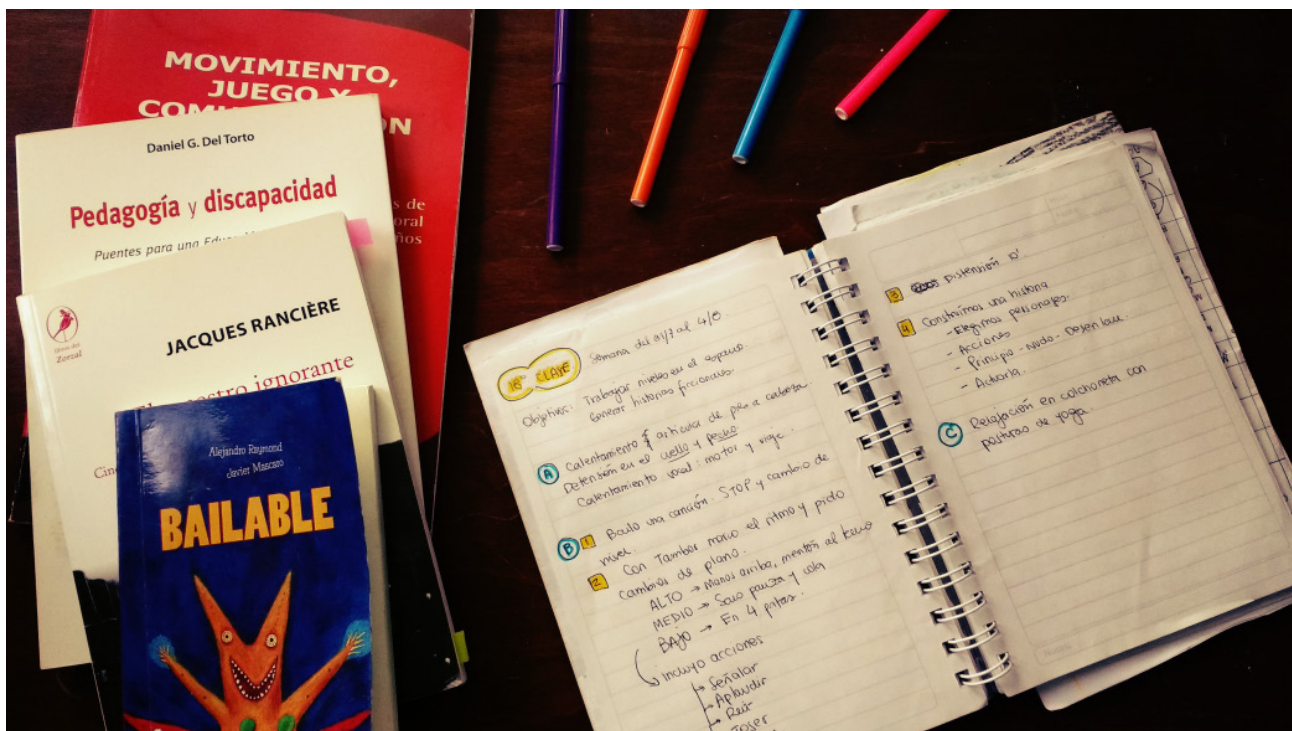 MOVIMIENTO,
JUEGO Y
s de
oral
ños
Daniel G. Del Torto
Pedagogía y discapacidad
Puentes para una
libros del
Zorzal
JACQUES RANCIÈRE
maestro ignorante
Cin
Alejandro Raymond
Javier Mascaro
BAILABLE
18ª CLASE
Semana del 31/7 al 4/8
Objetivos: Trabajar niveles en el espacio.
Generar historias ficcionales.
A Calentamiento articular de pies a cabeza
Detensión en el cuello y pecho
Calentamiento vocal: motor y viaje.
B 1 Bailo una canción. STOP y cambio de
nivel.
2 Con Tambor marco el ritmo y pido
cambios de plano.
ALTO → Manos arriba, mentón al techo
MEDIO → Saco panza y cola
BAJO → En 4 patas.
Incluyo acciones
→ Señalar
→ Aplaudir
→ Reír
→ Toser
3 Distensión 10'
4 Construimos una historia
- Elegimos personajes.
- Acciones
- Principio - Nudo - Desenlace.
- Actuarla.
C Relajación en colchoneta con
posturas de yoga.